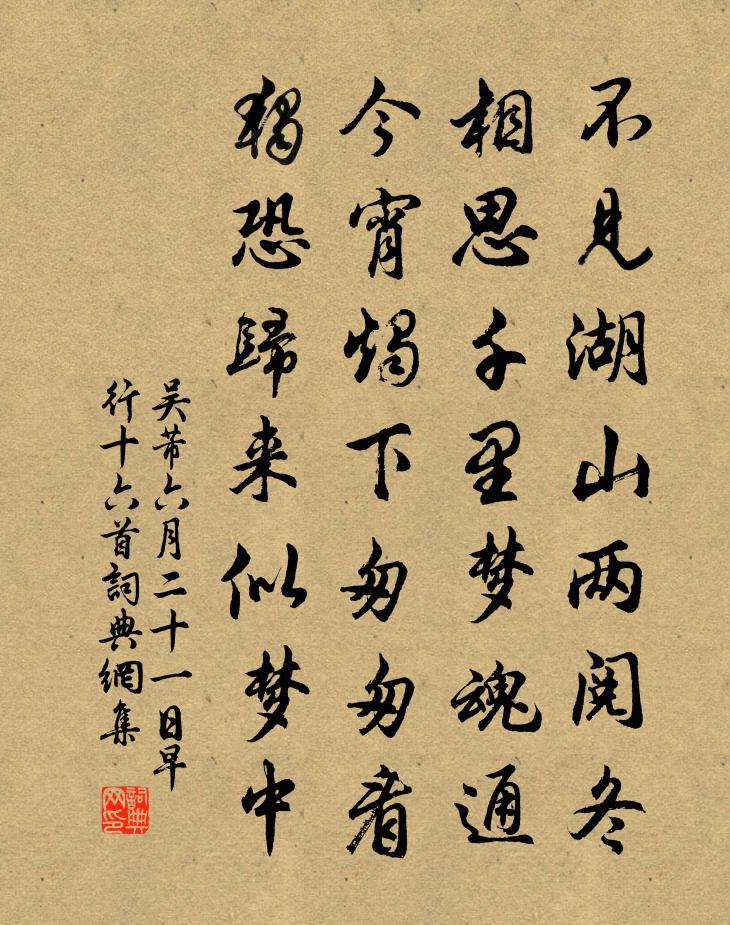 不见湖山两阅冬
相思千里梦魂通
今宵烛下匆匆看
独恐歸来似梦中
吴芾六月二十一日早
行十六首詞典網集
詞典网印